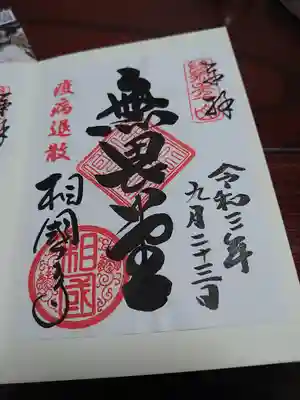 奉拝
令和三年
九月二十三日
無畏堂
疫病退散
相國寺